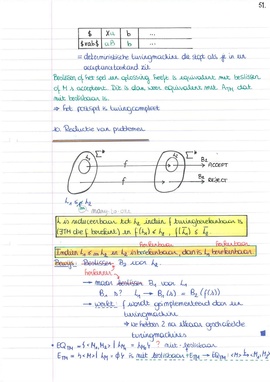 51.
$ | Xu | b | ...
$xab$ | aB | b | ...
= deterministische turingmachine die stopt als je in een
acceptatietoestand zit
Beslissen of het spel een oplossing heeft is equivalent met beslissen
of M s accepteert. Dit is dan weer equivalent met ATM dat
niet beslisbaar is.
→ Het spel is turingcompleet
Reductie van problemen
Σ* Σ*
f B2 ACCEPT
f B2 REJECT
L1 ≤m L2
many to one
L1 is reduceerbaar tot L2 indien f turingberekenbaar is
(∃TM die f berekent) en f(L1) ⊆ L2, f(L̄1) ⊆ L̄2
herkenbaar herkenbaar
Indien L1 ≤m L2 en L2 is beslisbaar, dan is L1 beslisbaar
Bewijs. Beslisser B2 voor L2.
herkenner
→ maak beslisser B1 voor L1
B1 s? L → B1(s) = B2(f(s))
→ werkt: f wordt geïmplementeerd door een
turingmachine
→ we hebben 2 na elkaar geschakelde
turingmachines
• EQTM = { <M1, M2> | LM1 = LM2 } ? niet-beslisbaar
ETM = { <M> | LM = ∅ } is niet beslisbaar